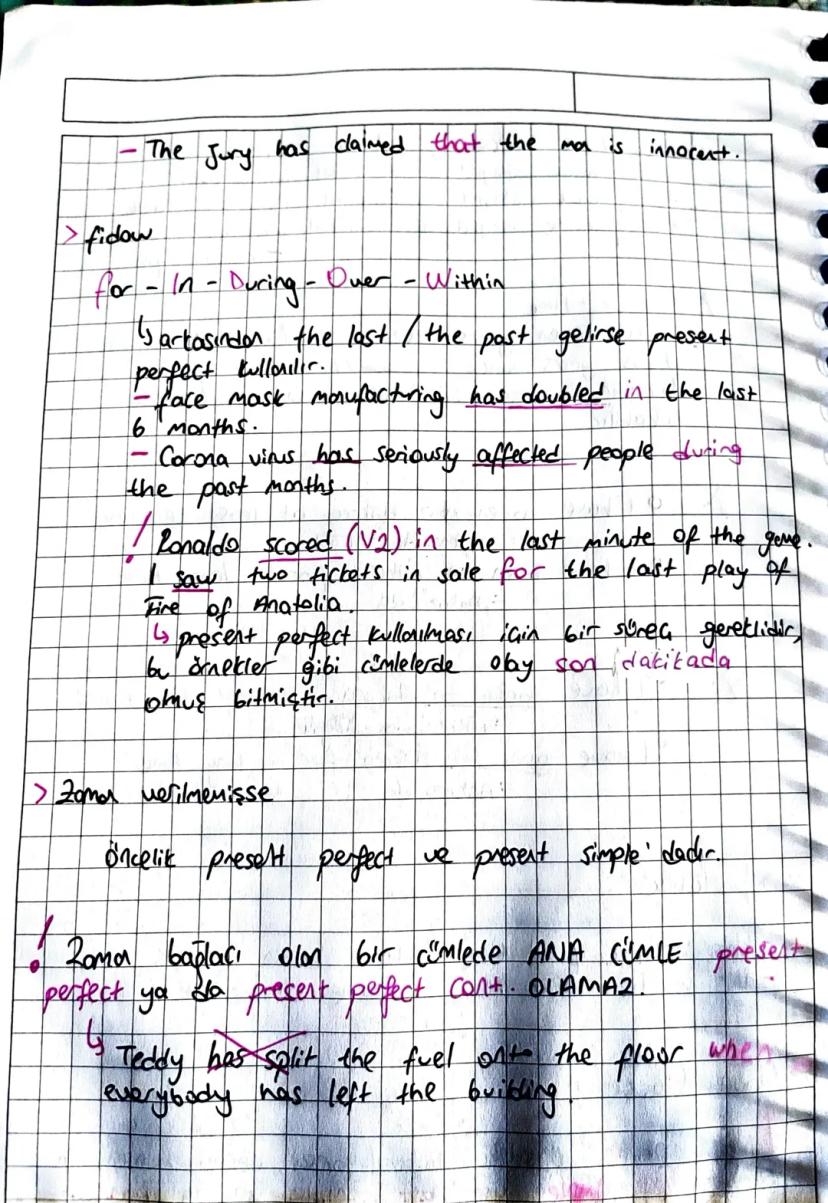 - The Jury has claimed that the man is innocent.
> fidow
for - In - During - Over - Within
↳ arkasından the last / the past gelirse present
perfect kullanılır.
- face mask manufacturing has doubled in the last
6 months.
- Corona virus has seriously affected people during
the past months.
! Ronaldo scored (V2) in the last minute of the game.
I saw two tickets in sale for the last play of
Fire of Anatolia.
↳ present perfect kullanılması için bir süreç gereklidir,
bu örnekler gibi cümlelerde olay son dakikada
olmuş bitmiştir.
> Zaman verilmemişse
öncelik present perfect ve present simple'dadır.
! Zaman bağlacı olan bir cümlede ANA CÜMLE present
perfect ya da present perfect cont. OLAMAZ.
↳ Teddy has split the fuel onto the floor when
everybody has left the building.